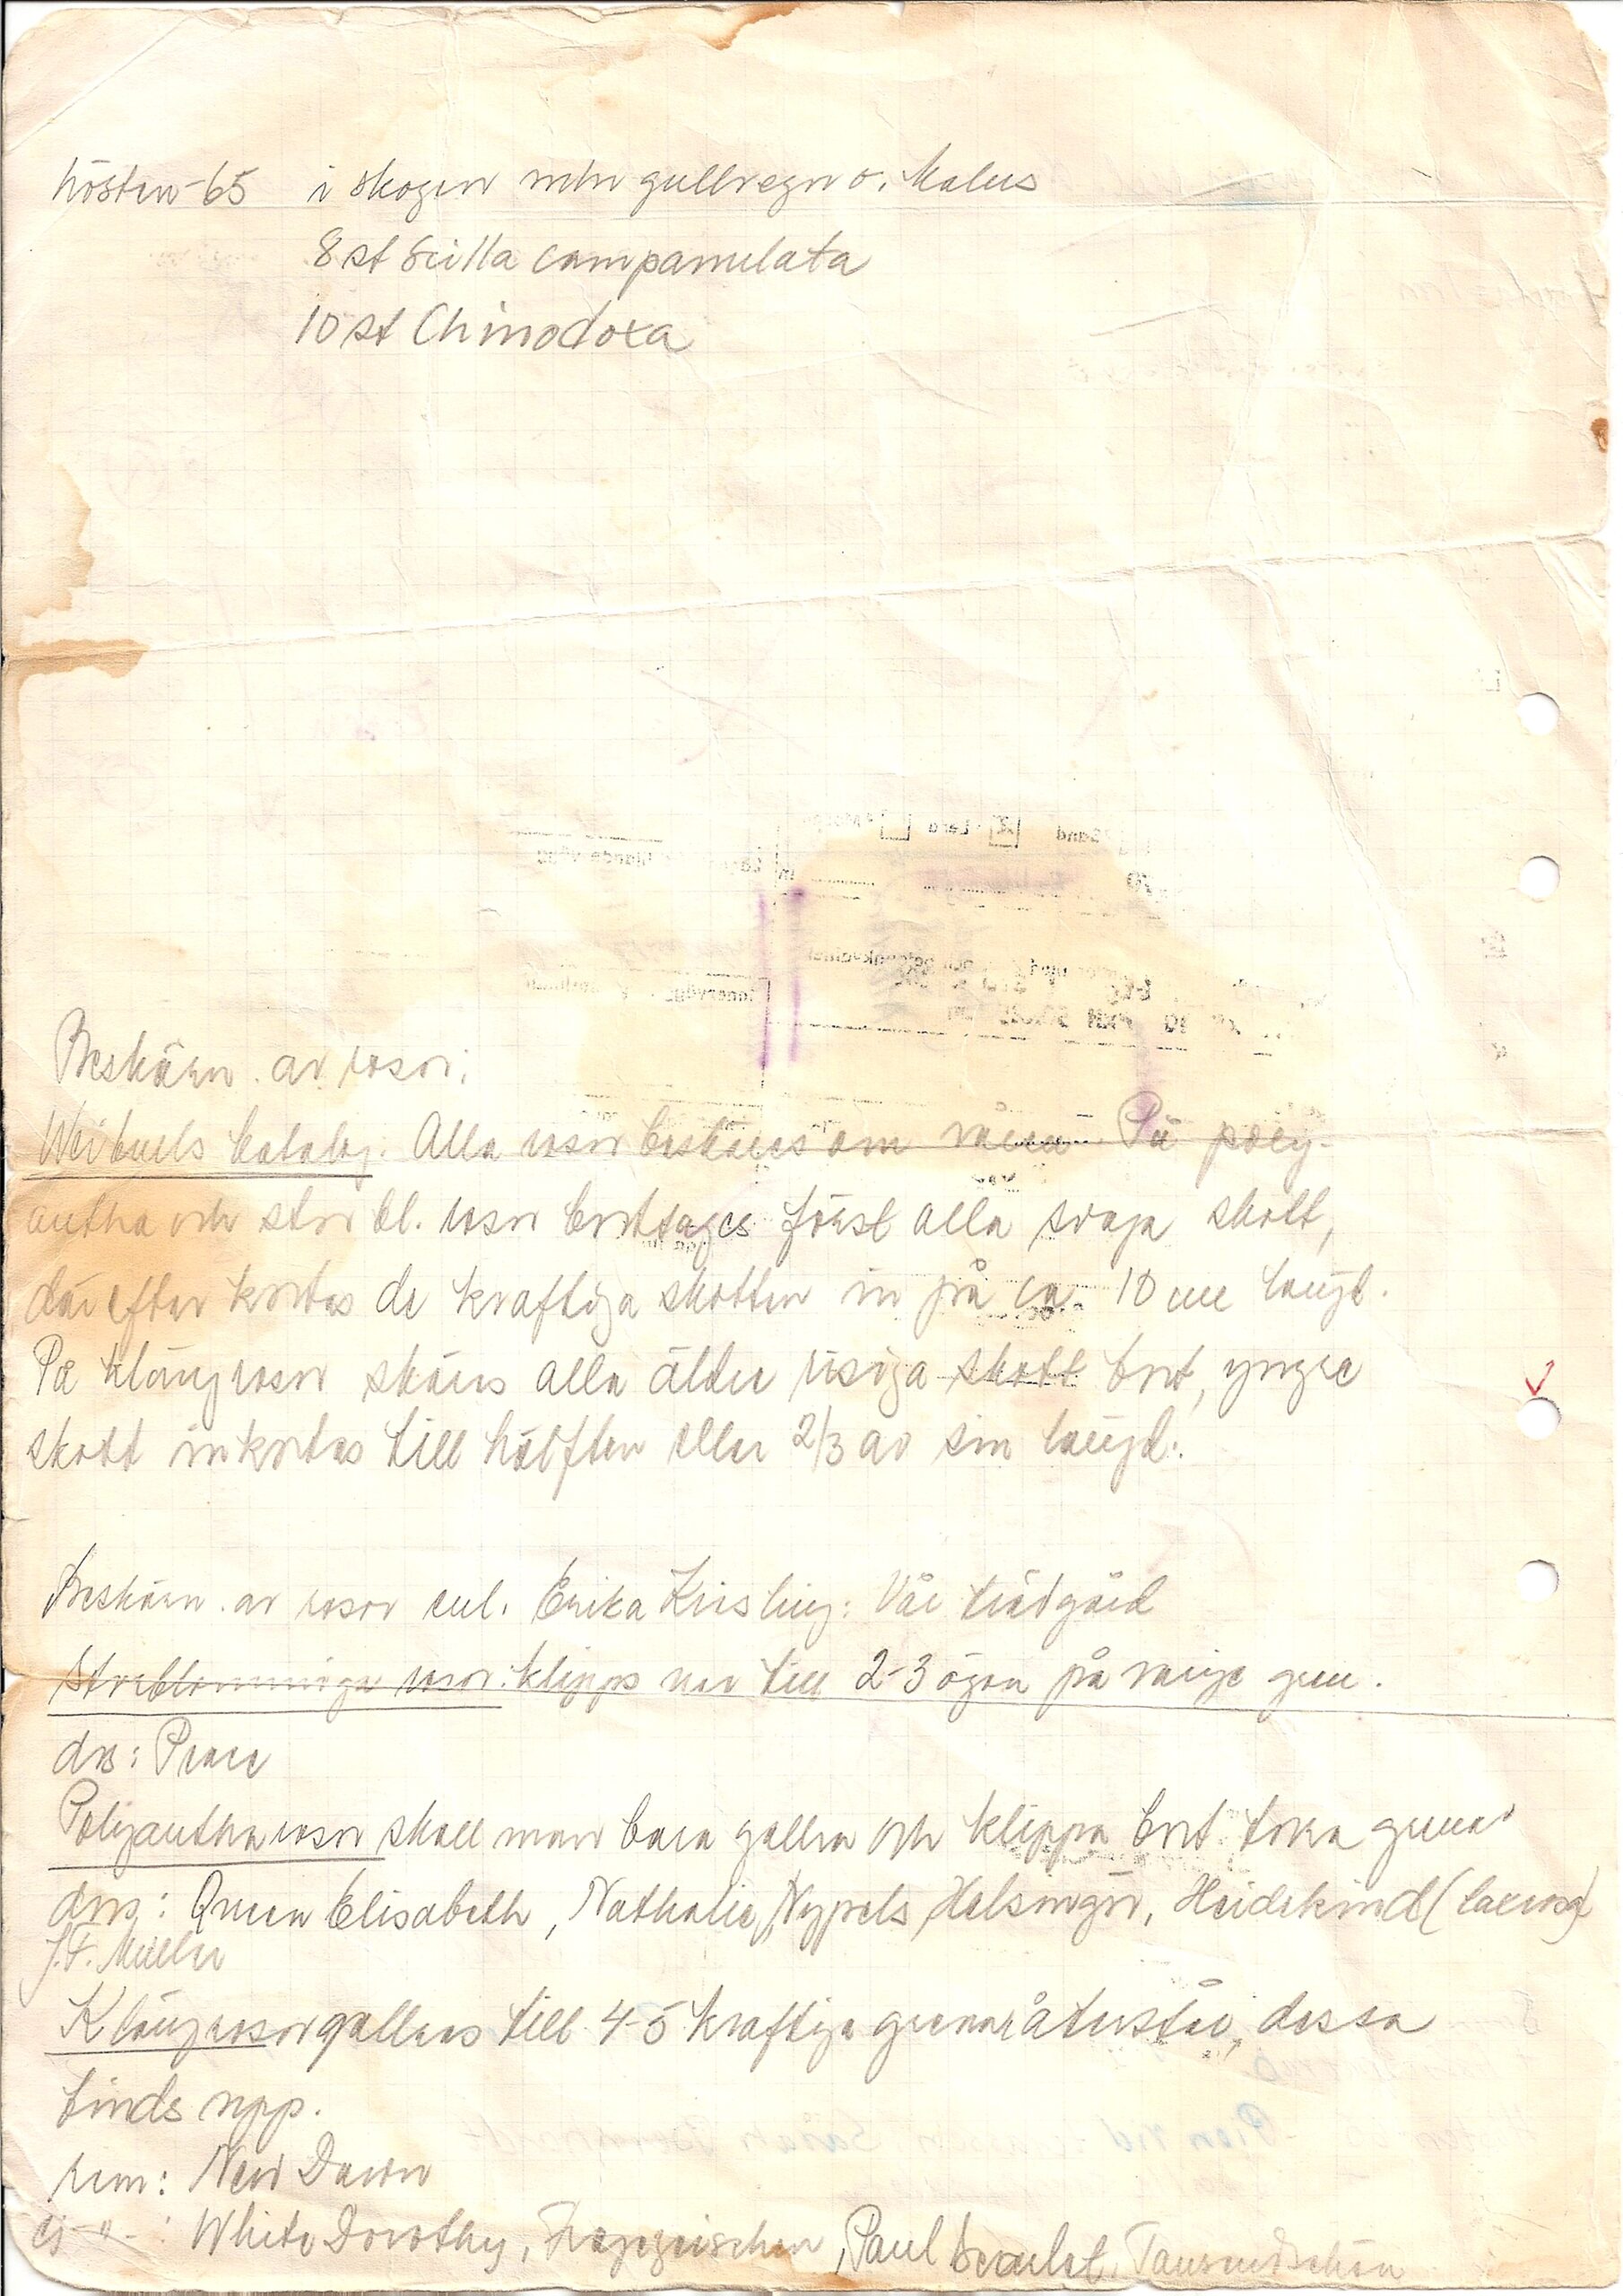 hösten-65 i skogen mln gullregn o. Malus
8 st Scilla campanulata
10 st Chinodoxa
Beskärn. av rosor:
Weibulls katalog. Alla rosor beskäres om våren. På poly-
antha och storbl. rosor borttages först alla svaga skott,
därefter kortas de kraftiga skotten in på ca 10 cm längd.
På klängrosor skäres alla äldre risiga skott bort, yngre
skott inkortas till hälften eller 2/3 av sin längd.
Beskärn. av rosor enl. Erika Kissling: Vår trädgård
Storblommiga rosor: klipps ner till 2-3 ögon på varje gren.
dvs: Peace
Polyantharosor skall man bara gallra och klippa bort torra grenar
dvs: Queen Elisabeth, Nathalie Nypels, Helsingör, Heidekind (laxrosa)
J.F. Müller
Klängrosor gallras till 4-5 kraftiga grenar återstår, dessa
binds upp.
rem: New Dawn
ej -"- : White Dorothy, Paul Scarlet, Tausendschön